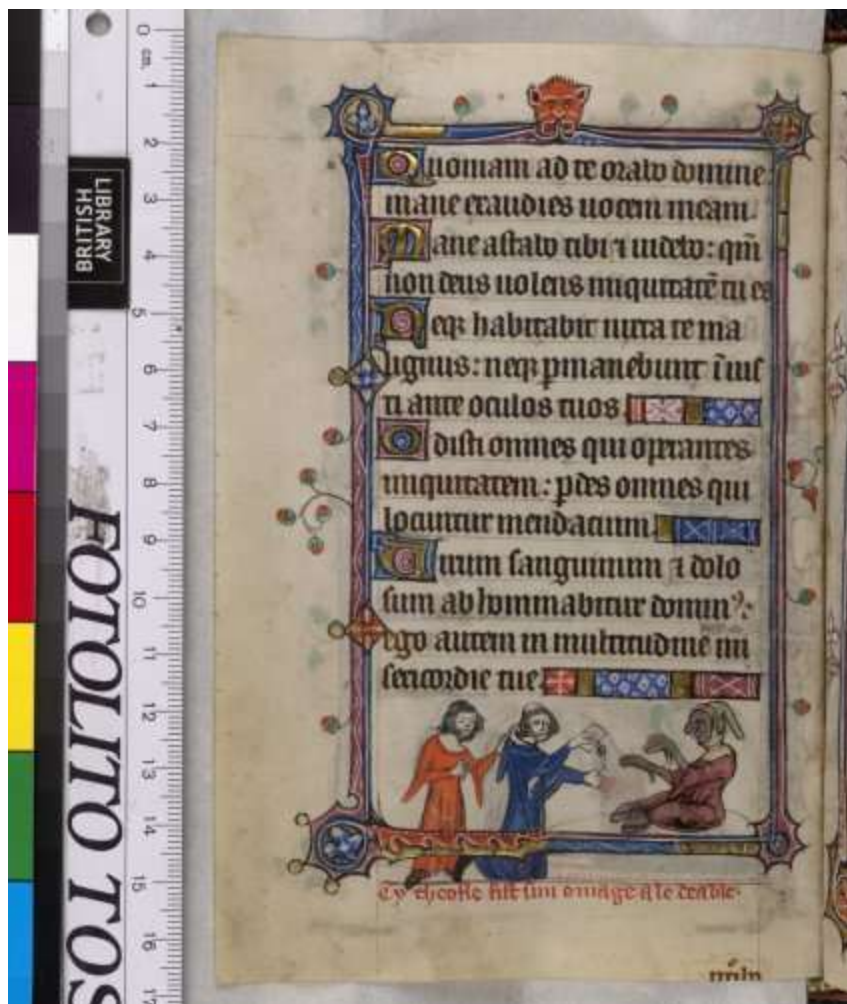 LIBRARY
BRITISH
FOTOLITO TOS
0
cm.
1
2
3
4
5
6
7
8
9
10
11
12
13
14
15
16
17
Quoniam ad te orabo domine
mane exaudies uocem meam.
Mane astabo tibi ⁊ uidebo: qm̄
non deus uolens iniquitatē tu es
Neqꝫ habitabit iuxta te ma
lignus: neqꝫ ꝑmanebunt īius
ti ante oculos tuos
Odisti omnes qui operantes
iniquitatem: ꝑdes omnes qui
locuntur mendacium
Uirum sanguinum ⁊ dolo
sum abhominabitur dominꝰ:
ego autem in multitudinē mi
sericordie tue
Cy theofle fist sun omage a le deable.